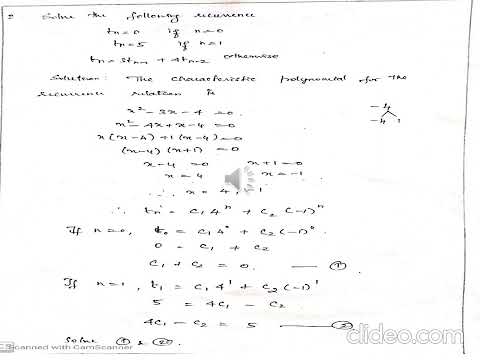 2 Solve the following recurrence
tn=0 if n=0
tn=5 if n=1
tn=3tn-1 + 4tn-2 otherwise
Solution: The characteristic polynomial for the
recurrence relation is
x²-3x-4 =0
x²-4x+x-4=0
x(x-4)+1(x-4)=0
(x-4)(x+1)=0
x-4=0 x+1=0
x=4 x=-1
∴ x=4, -1
-4
-4 1
∴ tn = C1 4ⁿ + C2 (-1)ⁿ
If n=0, t0 = C1 4⁰ + C2 (-1)⁰
0 = C1 + C2
C1 + C2 = 0. — ①
If n=1, t1 = C1 4¹ + C2 (-1)¹
5 = 4C1 - C2
4C1 - C2 = 5 — ②
Solve ① & ②
Scanned with CamScanner
clideo.com